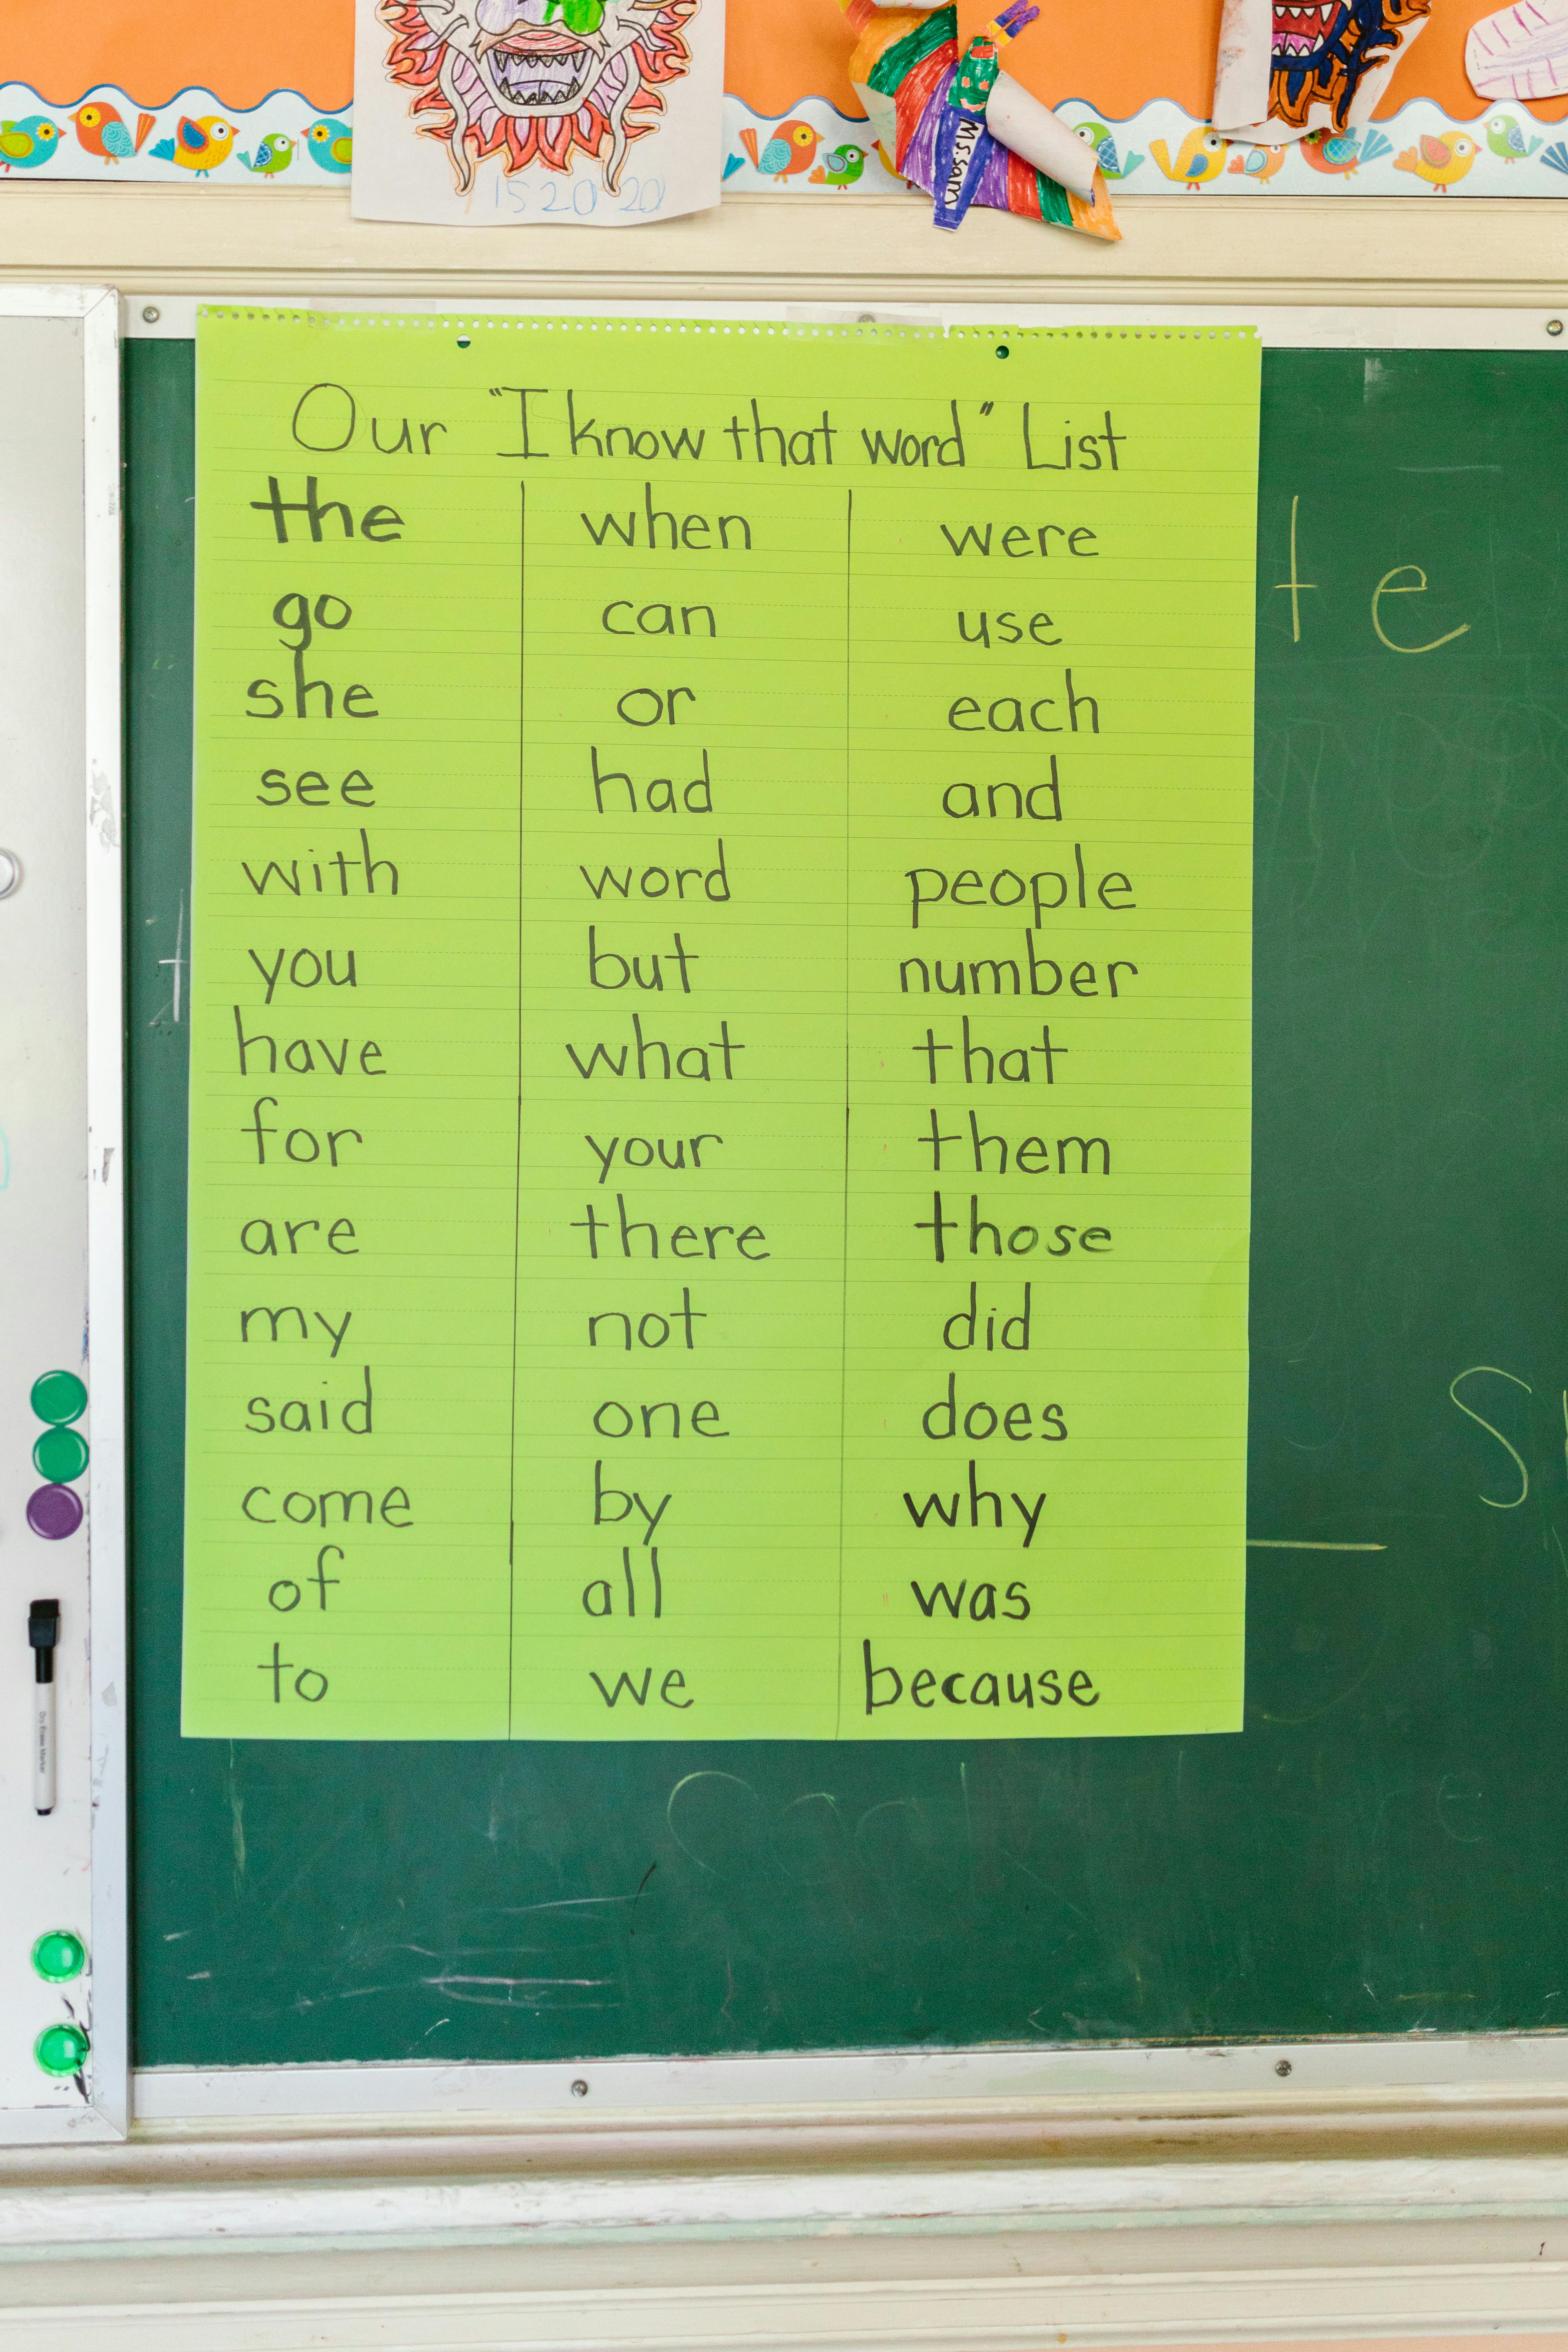 15 20 20
Ms. sam
Our "I know that word" List
the when were
go can use
she or each
see had and
with word people
you but number
have what that
for your them
are there those
my not did
said one does
come by why
of all was
to we because
te
S
Dry Erase Marker